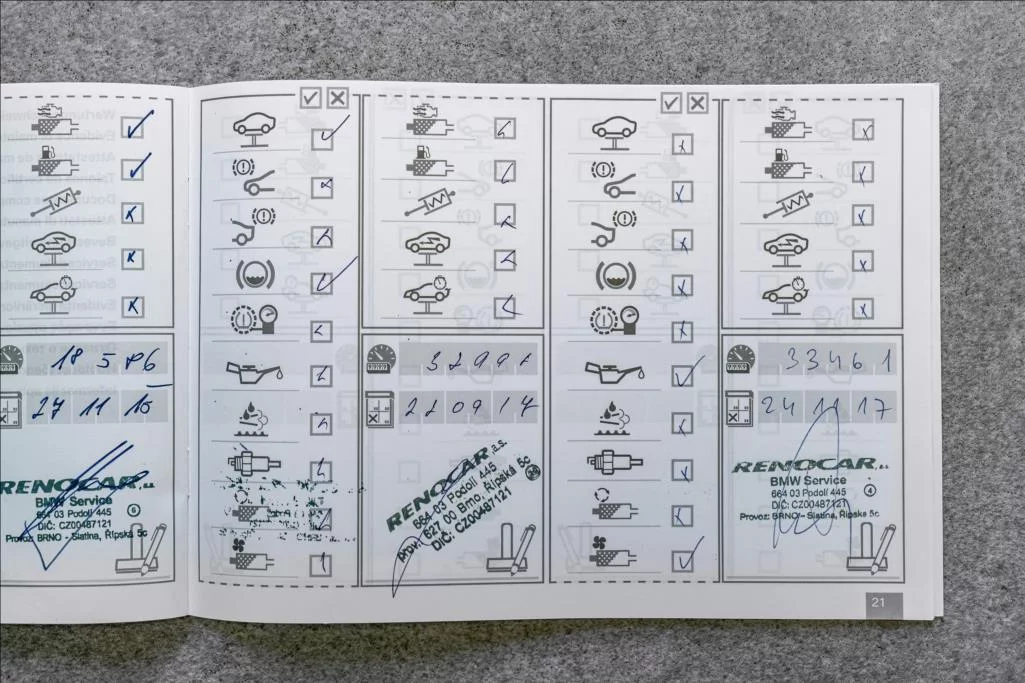 18 5 86
27 11 15
RENOCAR, a.s.
BMW Service
664 03 Podolí 445
DIČ: CZ00487121
Provoz: BRNO - Slatina, Řípská 5c
6
3299
22 09 17
RENOCAR, a.s.
664 03 Podolí 445
prov.: 627 00 Brno, Řípská 5c
DIČ: CZ00487121
33461
24 11 17
RENOCAR, a.s.
BMW Service
664 03 Podolí 445
DIČ: CZ00487121
Provoz: BRNO - Slatina, Řípská 5c
4
21